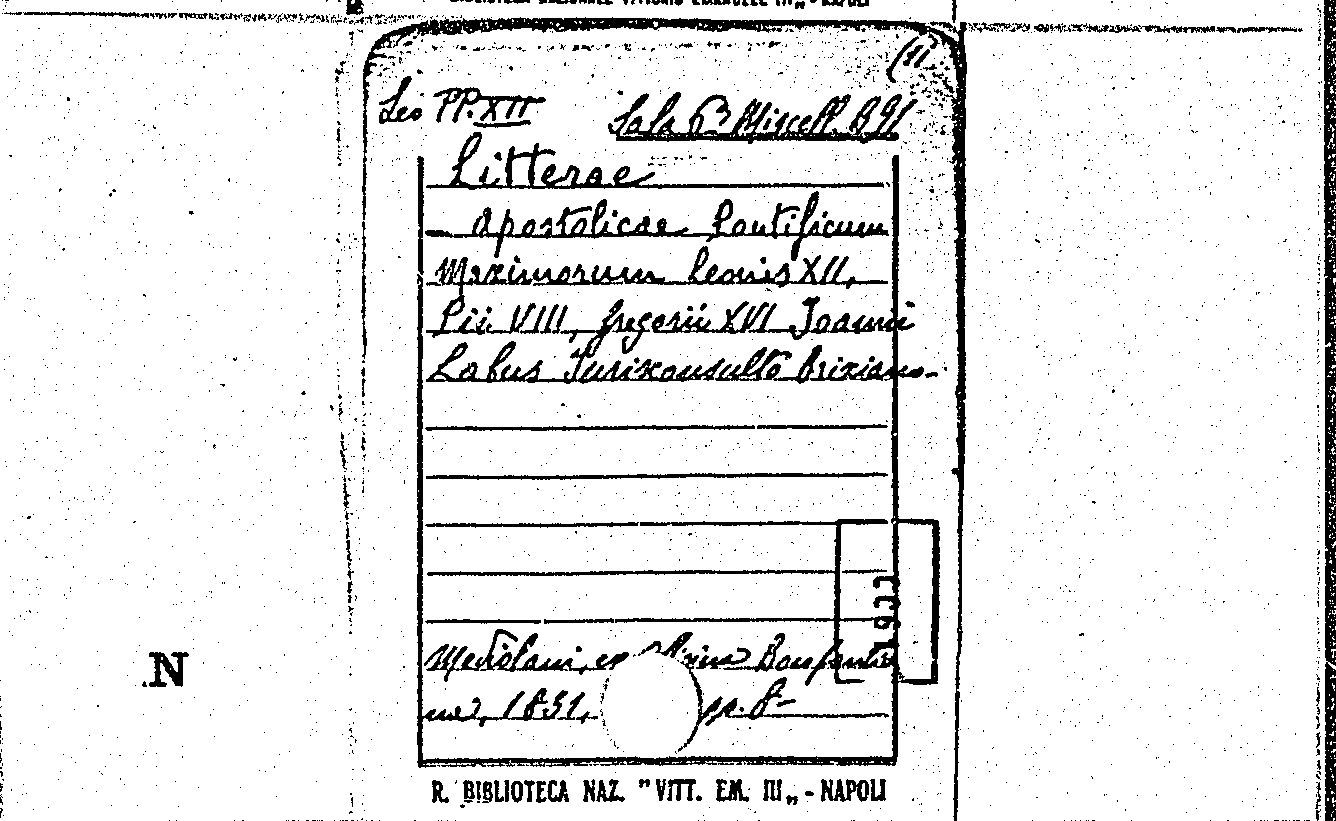 BIBLIOTECA NAZIONALE VITTORIO EMANUELE III„ - NAPOLI
(11
Leo PP. XII
Sala 6ª Miscell. B 91
Litterae
- Apostolicae Pontificum
Maximorum Leonis XII,
Pii VIII, Gregorii XVI Joanni
Labus Jurisconsulto brixiano.
1933
Mediolani, ex Bonfanti
1831, pp. 8-
N
R. BIBLIOTECA NAZ. "VITT. EM. III„ - NAPOLI